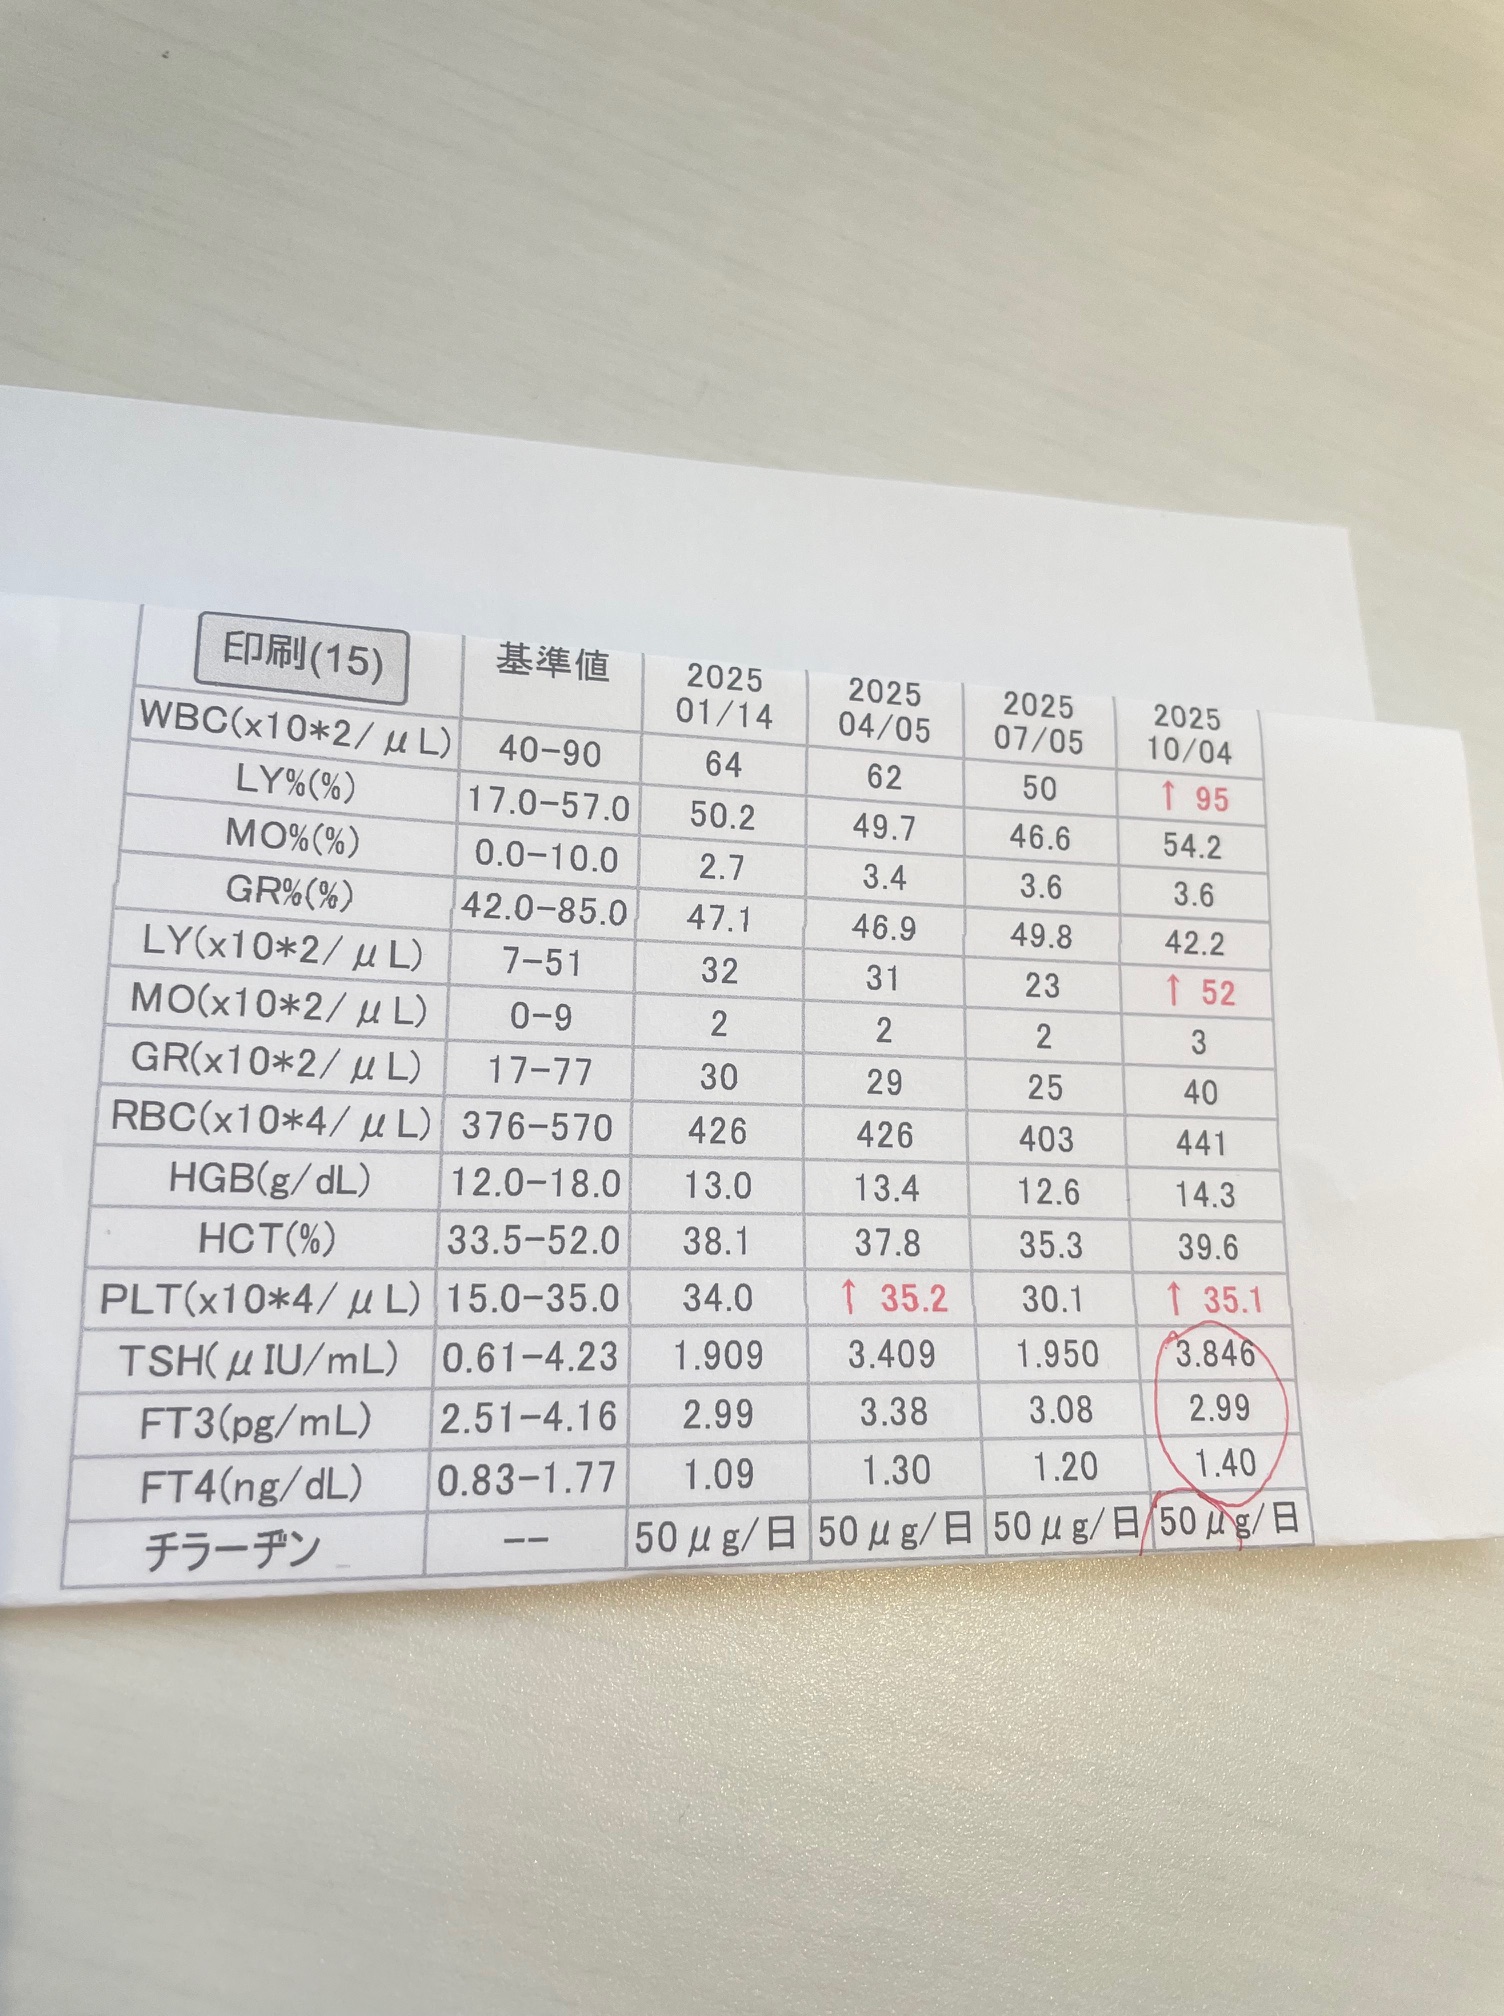 印刷(15) 基準値 2025 01/14 2025 04/05 2025 07/05 2025 10/04
WBC(x10*2/μL) 40-90 64 62 50 ↑ 95
LY%(%) 17.0-57.0 50.2 49.7 46.6 54.2
MO%(%) 0.0-10.0 2.7 3.4 3.6 3.6
GR%(%) 42.0-85.0 47.1 46.9 49.8 42.2
LY(x10*2/μL) 7-51 32 31 23 ↑ 52
MO(x10*2/μL) 0-9 2 2 2 3
GR(x10*2/μL) 17-77 30 29 25 40
RBC(x10*4/μL) 376-570 426 426 403 441
HGB(g/dL) 12.0-18.0 13.0 13.4 12.6 14.3
HCT(%) 33.5-52.0 38.1 37.8 35.3 39.6
PLT(x10*4/μL) 15.0-35.0 34.0 ↑ 35.2 30.1 ↑ 35.1
TSH(μIU/mL) 0.61-4.23 1.909 3.409 1.950 3.846
FT3(pg/mL) 2.51-4.16 2.99 3.38 3.08 2.99
FT4(ng/dL) 0.83-1.77 1.09 1.30 1.20 1.40
チラーヂン -- 50μg/日 50μg/日 50μg/日 50μg/日